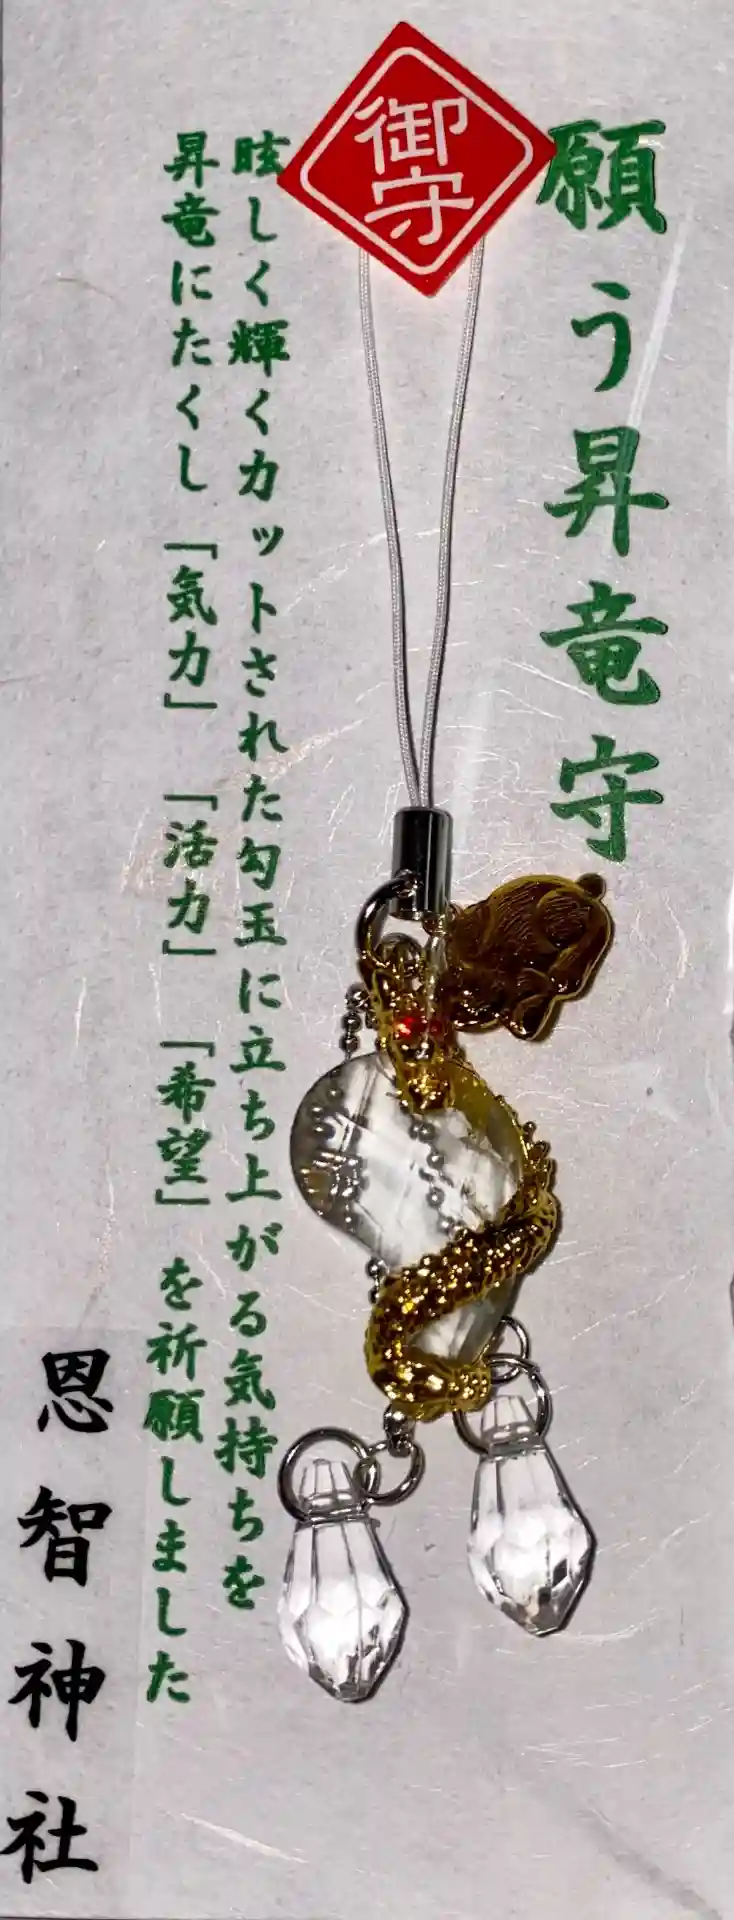 御守
願う昇竜守
眩しく輝くカットされた勾玉に立ち上がる気持ちを
昇竜にたくし「気力」「活力」「希望」を祈願しました
恩智神社